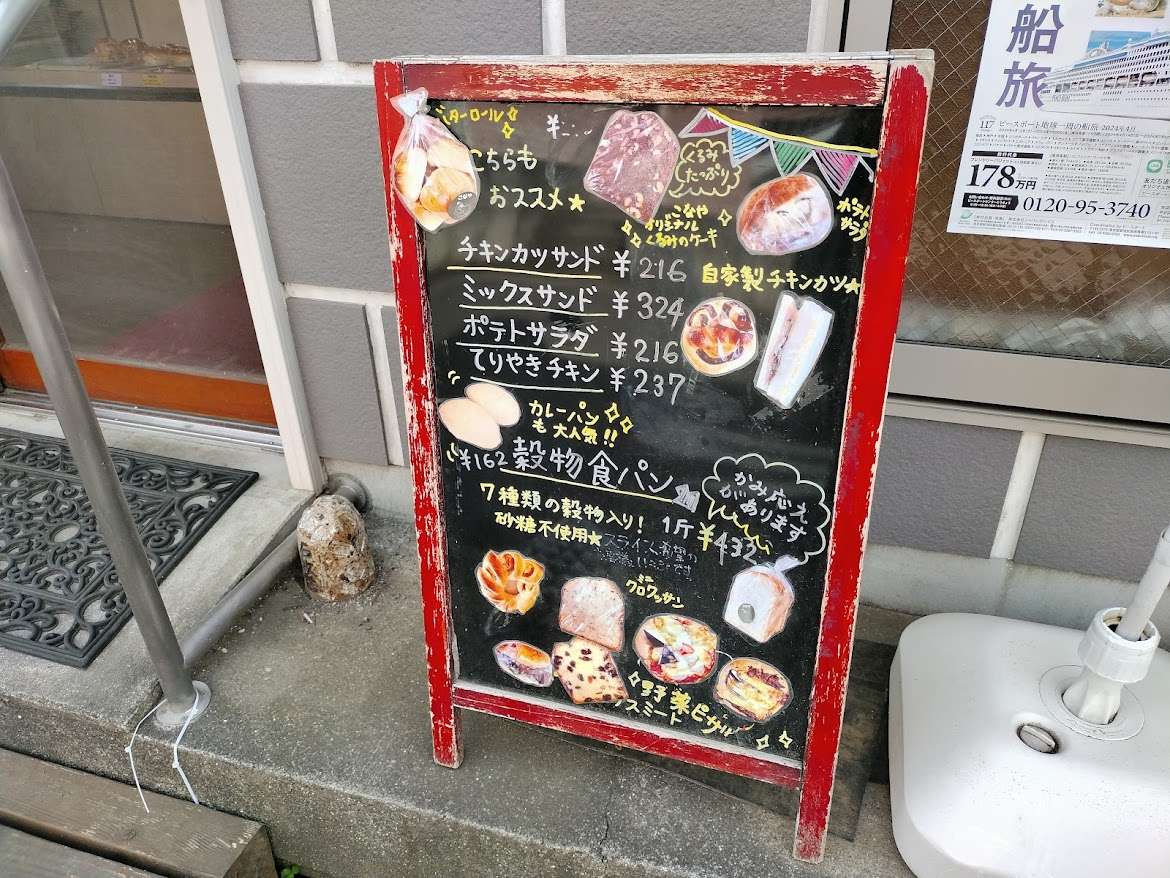 バターロール
こちらも
おススメ★
くるみ
たっぷり
こなや
オリジナル
くるみのケーキ
ポテト
サラダ
チキンカツサンド ¥216
自家製チキンカツ★
ミックスサンド ¥324
ポテトサラダ ¥216
てりやきチキン ¥237
カレーパン
も大人気!!
¥162
穀物食パン
7種類の穀物入り!
砂糖不使用★
1斤 ¥432
かみ応え
があります
ミニ
クロワッサン
野菜ピザ
船
旅
ピースボート地球一周の船旅 2024年4月
178万円
0120-95-3740